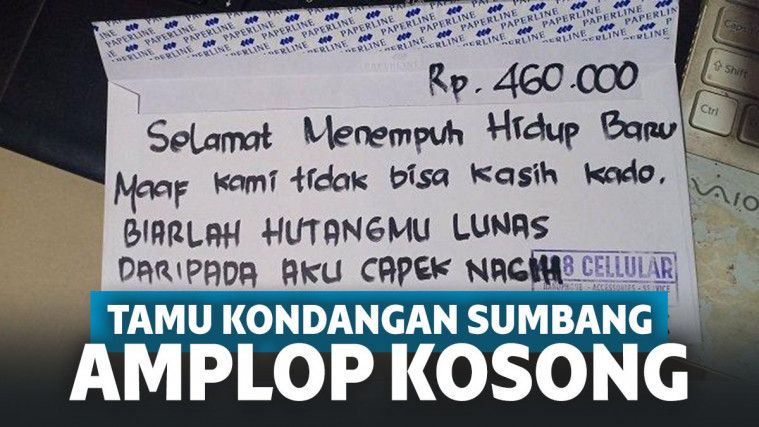 PAPERLINE PAPERLINE PAPERLINE PAPERLINE
PAPERLINE
Rp. 460.000
Selamat Menempuh Hidup Baru
Maaf kami tidak bisa kasih kado.
BIARLAH HUTANGMU LUNAS
DARIPADA AKU CAPEK NAGIH
8 CELLULAR
HANDPHONE - ACCESSORIES - SERVICE
Caps Lock
Shift
Ctrl
VAIO
TAMU KONDANGAN SUMBANG
AMPLOP KOSONG